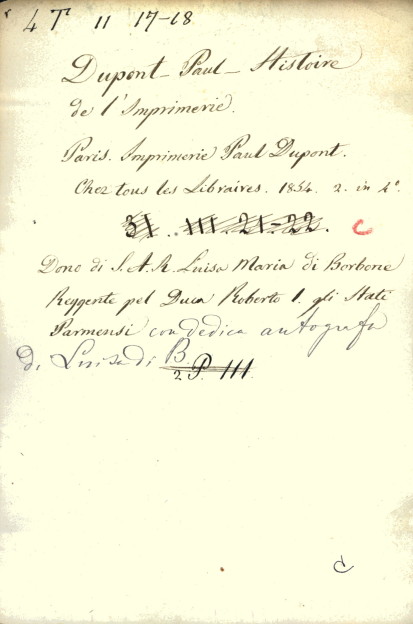 4 T II 17-18
Dupont - Paul - Histoire
de l'Imprimerie.
Paris. Imprimerie Paul Dupont.
Chez tous les Libraires. 1854. 2. in 4°
31. III. 21-22. C
Dono di S. A. R. Luisa Maria di Borbone
Reggente pel Duca Roberto I. gli Stati
Parmensi con dedica autografa
di Luisa di B.
2 P. III
C